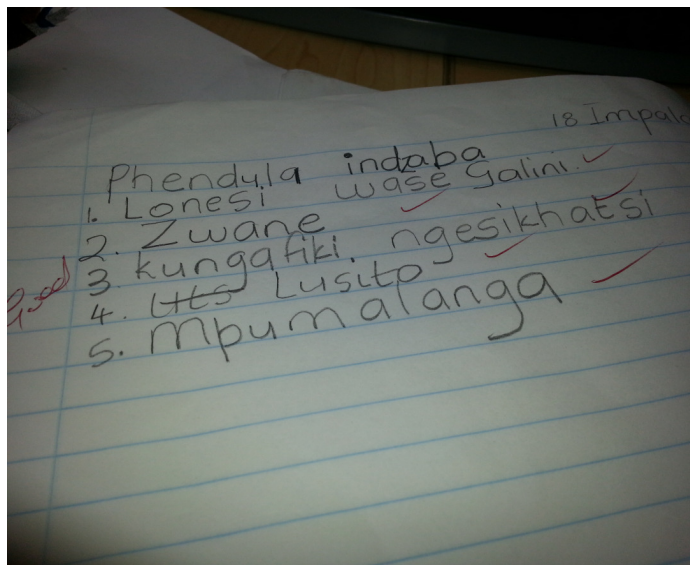 18 Impala
Phendula indaba
1. Lonesi wase Galini.
2. Zwane
3. kungafiki ngesikhatsi
4. Lusito
5. Mpumalanga
Good